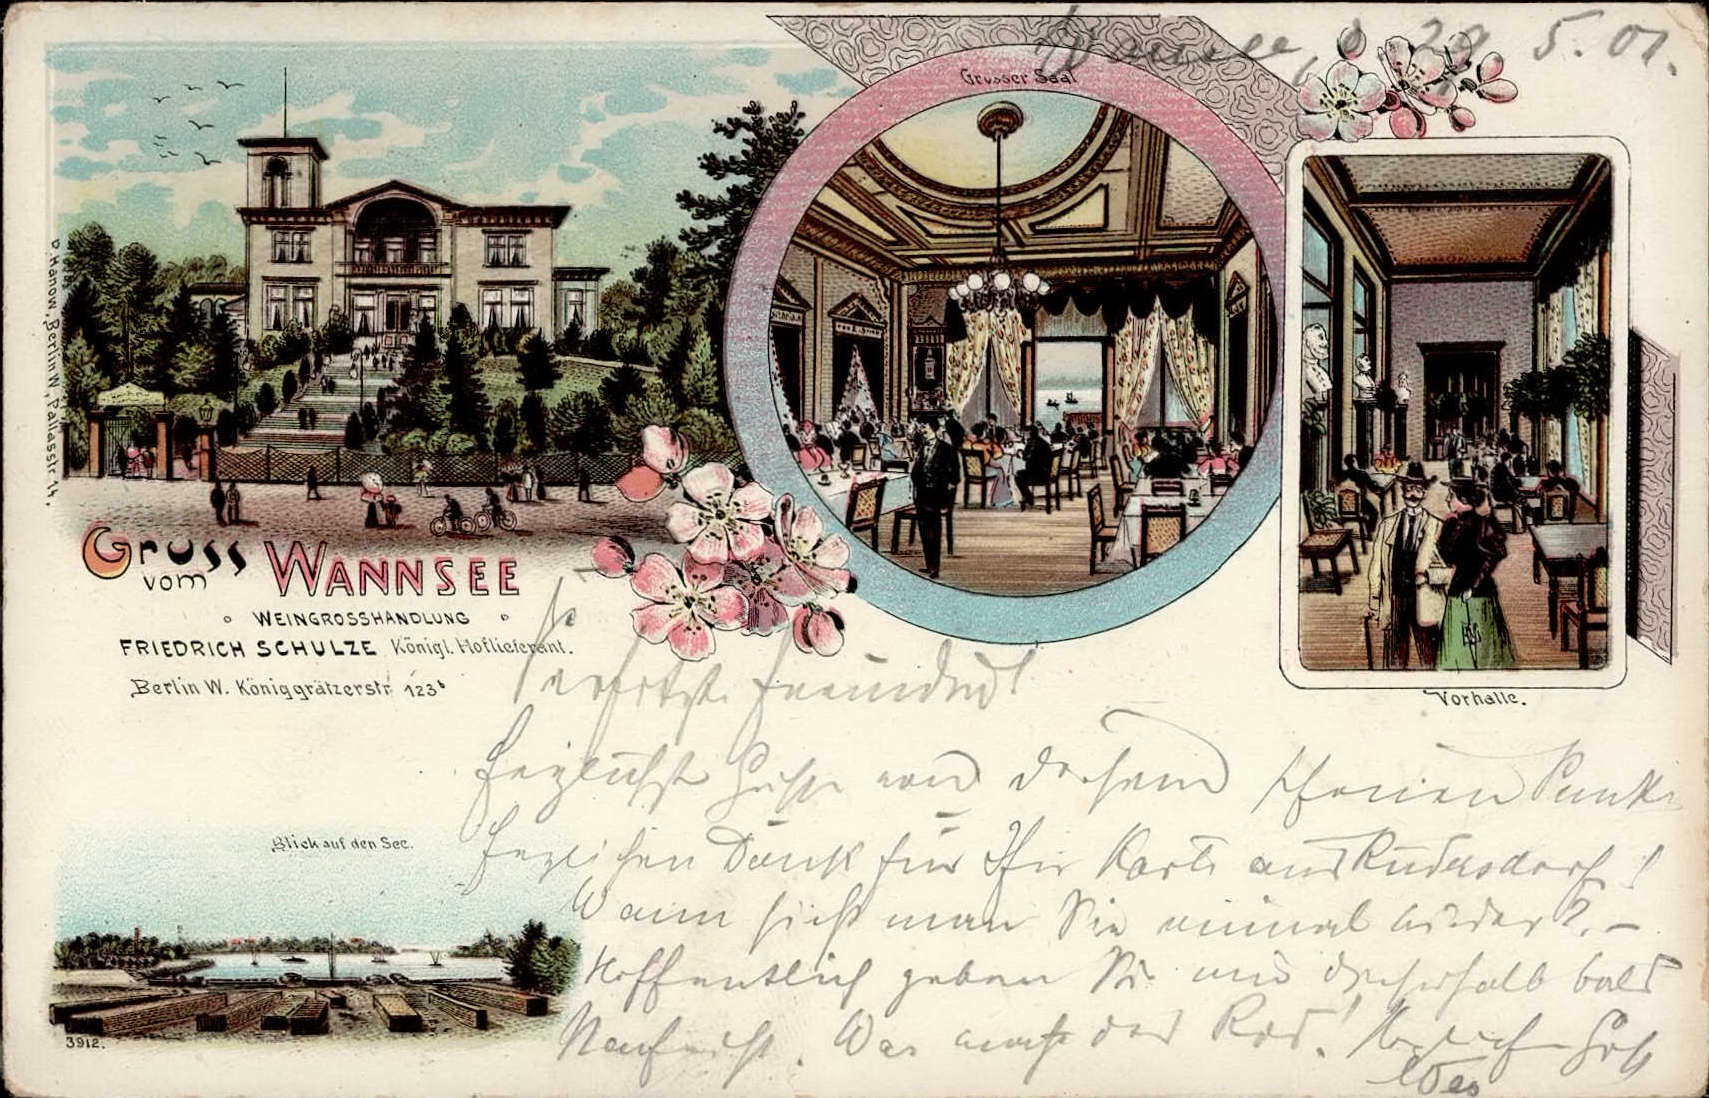 Wannsee, d 29 5. 01.
Grosser Saal
O. Hanow, Berlin W, Pallasstr. 14.
Gruss
vom WANNSEE
WEINGROSSHANDLUNG
FRIEDRICH SCHULZE Königl. Hoflieferant.
Berlin W. Königgrätzerstr. 123b
Vorhalle.
Freundin!
Herzlichste Grüße von diesem schönen Punkt
herzlichen Dank für Ihre Karte aus Rüdersdorf!
Wann sieht man Sie einmal wieder?. –
Hoffentlich geben Sie uns bald
Nachricht. Was macht das Rad!
Blick auf den See.
3912.